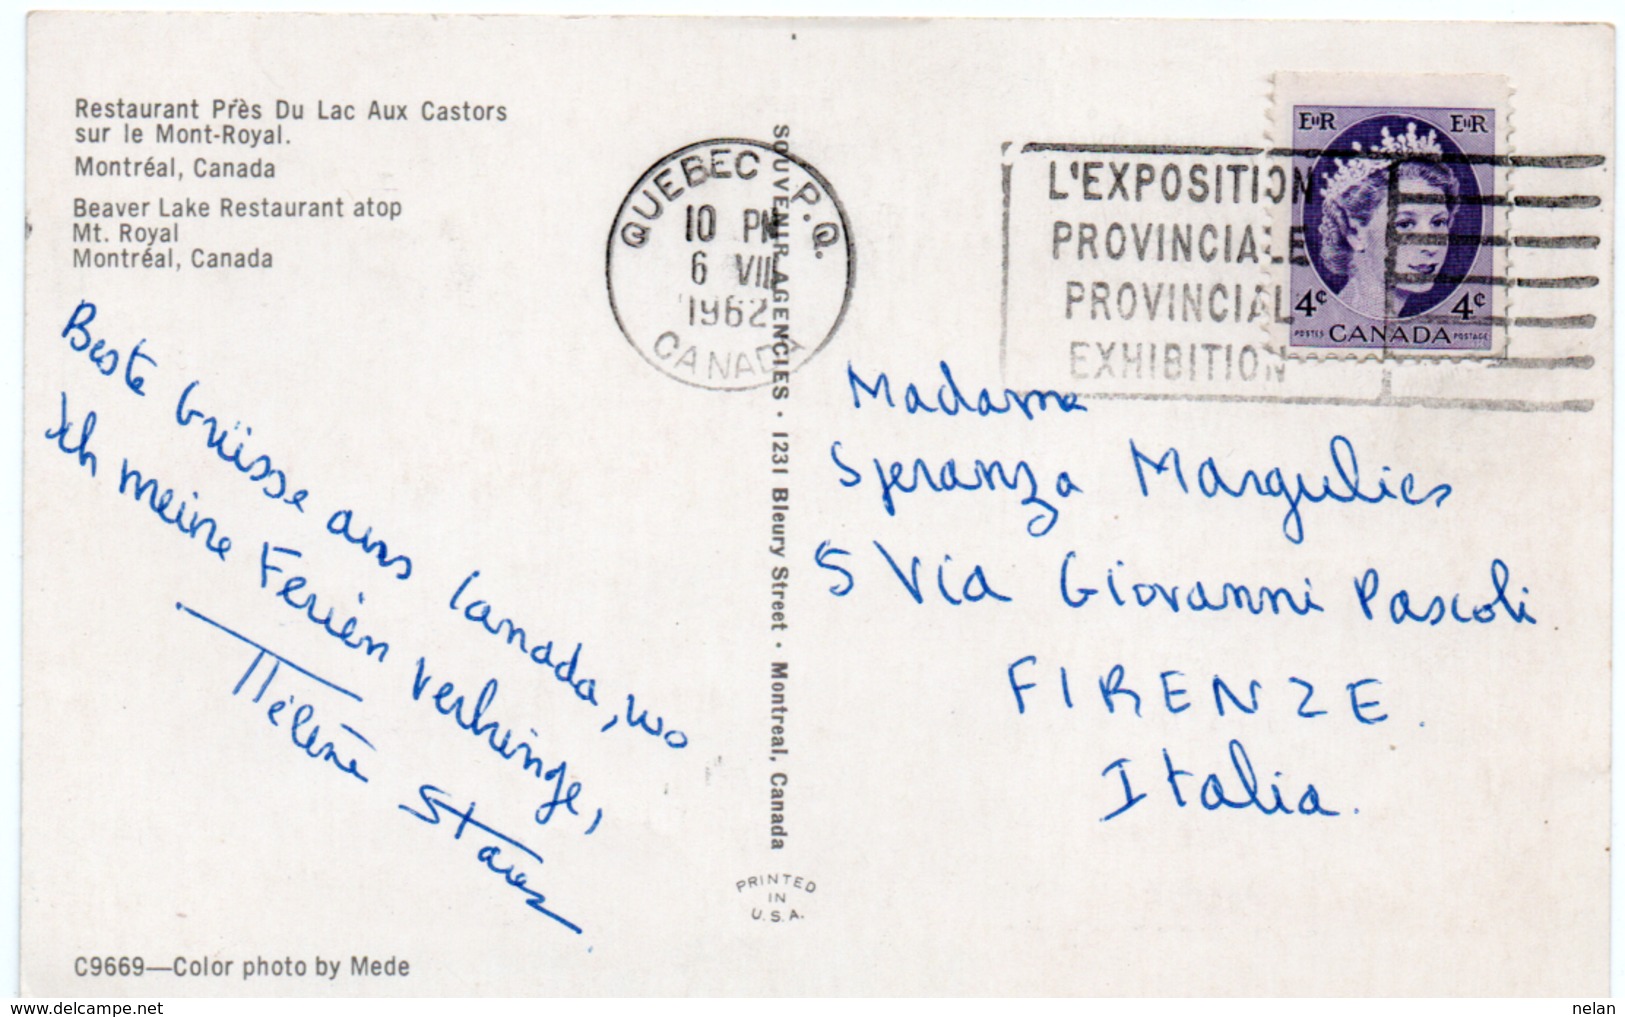 Restaurant Près Du Lac Aux Castors
sur le Mont-Royal.
Montréal, Canada
Beaver Lake Restaurant atop
Mt. Royal
Montréal, Canada
Beste Grüsse aus Canada, wo
Ich meine Ferien verbringe,
Hélène
C9669—Color photo by Mede
QUEBEC P.Q.
10 PM
6 VII
1962
CANADA
SOUVENIR AGENCIES · 1231 Bleury Street · Montreal, Canada
PRINTED
IN
U.S.A.
L'EXPOSITION
PROVINCIALE
PROVINCIAL
EXHIBITION
EIIR EIIR
4¢ 4¢
POSTES CANADA POSTAGE
Madame
Speranza Margulies
5 Via Giovanni Pascoli
FIRENZE.
Italia.
nelan